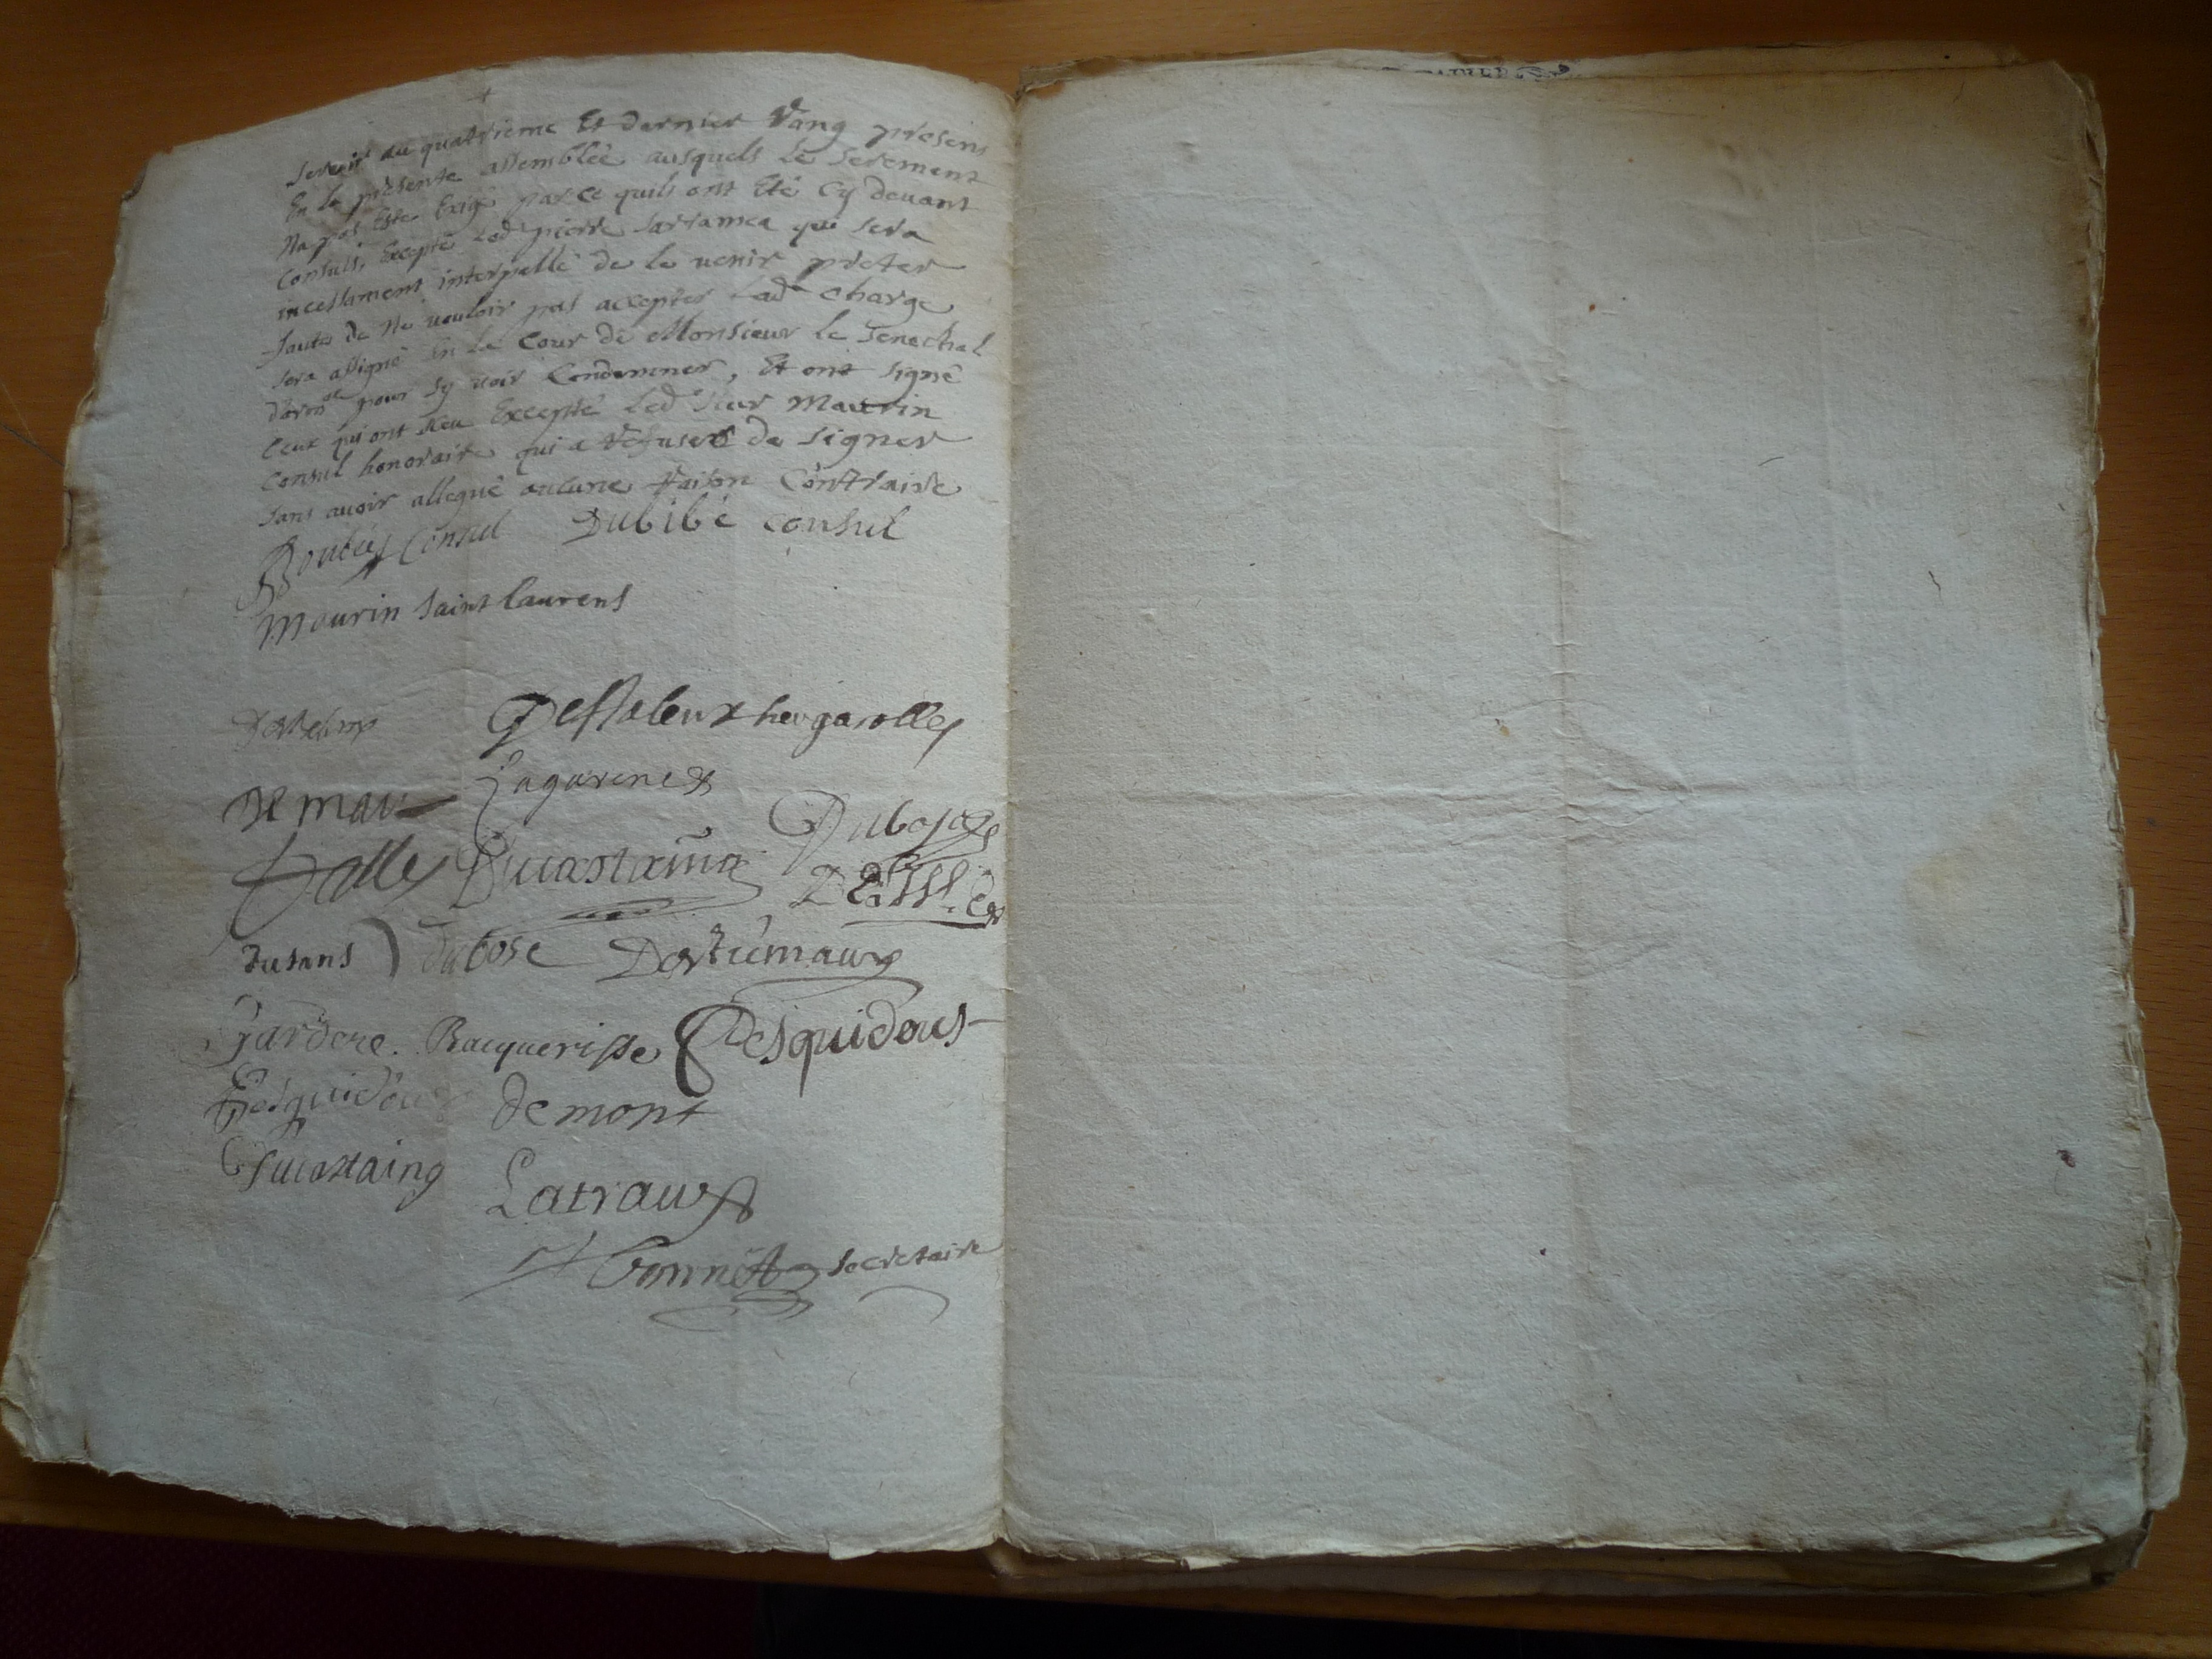 servir au quatrieme Et dernier Rang presens
En la presente assemblée ausquels le serement
Na pas Este Exigé parce quils ont Eté Cy devant
Consuls, Excepté Led pierre sarramea qui sera
incessament interpellé de le venir preter
faute de Ne vouloir pas accepter Lad charge
sera assigné En la Cour de Monsieur le senechal
darm.ac pour sy voir Condemner, Et ont signé
Ceux qui ont sceu Excepté Led sieur Maurin
Consul honoraire qui a refuser de signer
sans avoir allegué aucune raison Contraire
Boubée Consul Dubibé consul
Maurin saint laurens
Lagarene
De mau
Ducastaing Dubosc
dusans dubosc
Gardere. Bacquerisse Pesquidous
Pesquidous demont
Ducastaing
Latraux
Bonnet secretaire